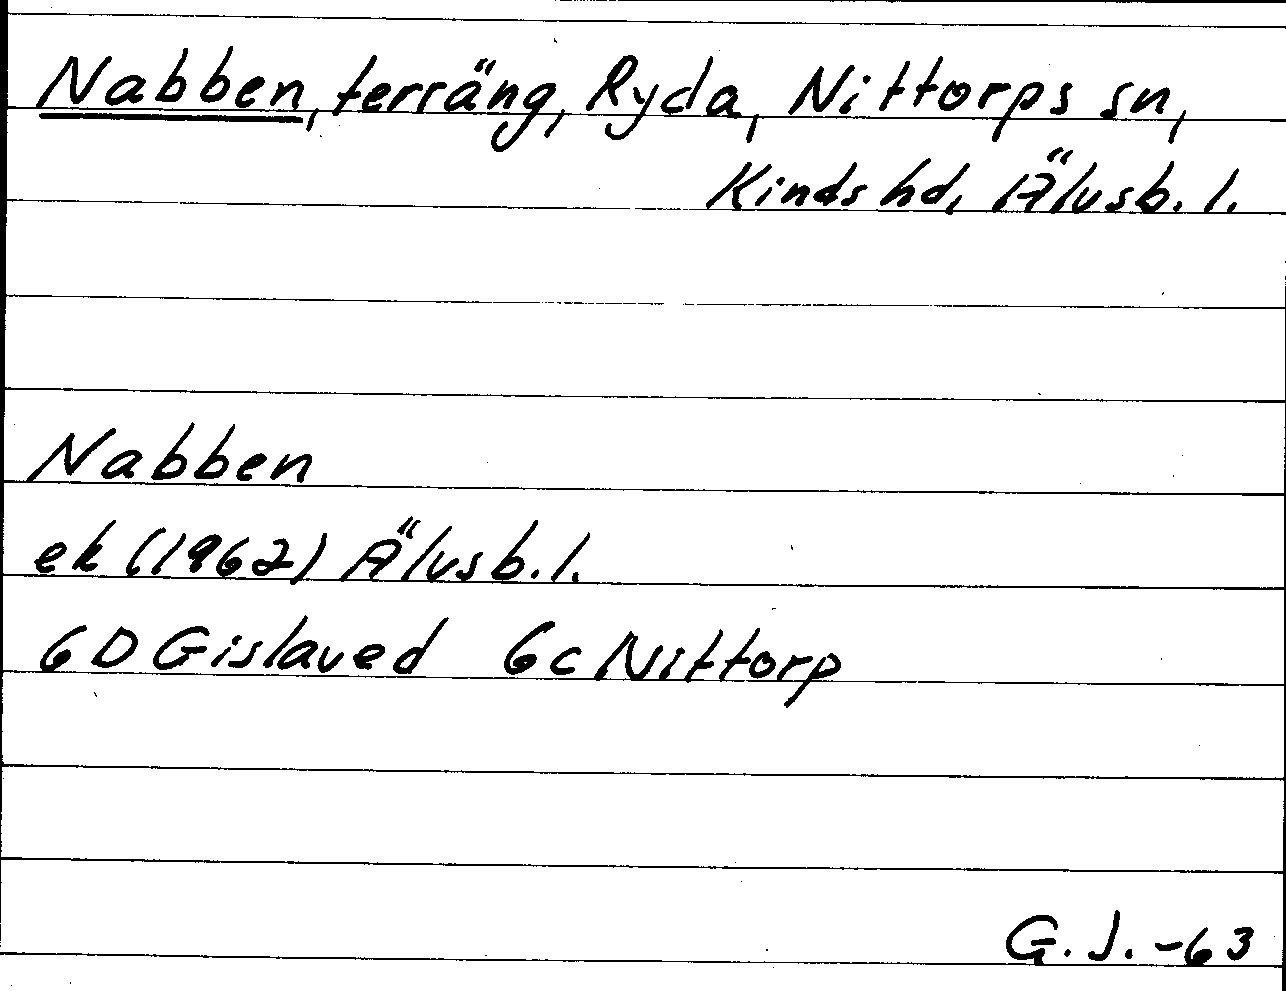 Nabben, terräng, Ryda, Nittorps sn,
Kinds hd, Älvsb. l.
Nabben
ek (1962) Älvsb. l.
6D Gislaved 6c Nittorp
G. J. -63